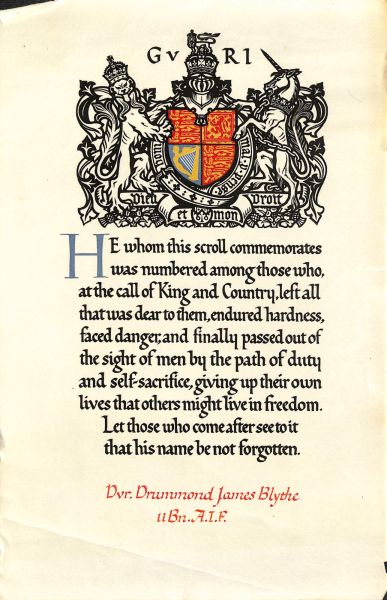 GV RI
Dieu et mon Droit
HE whom this scroll commemorates
was numbered among those who,
at the call of King and Country, left all
that was dear to them, endured hardness,
faced danger, and finally passed out of
the sight of men by the path of duty
and self-sacrifice, giving up their own
lives that others might live in freedom.
Let those who come after see to it
that his name be not forgotten.
Dvr. Drummond James Blythe
11 Bn. A.I.F.